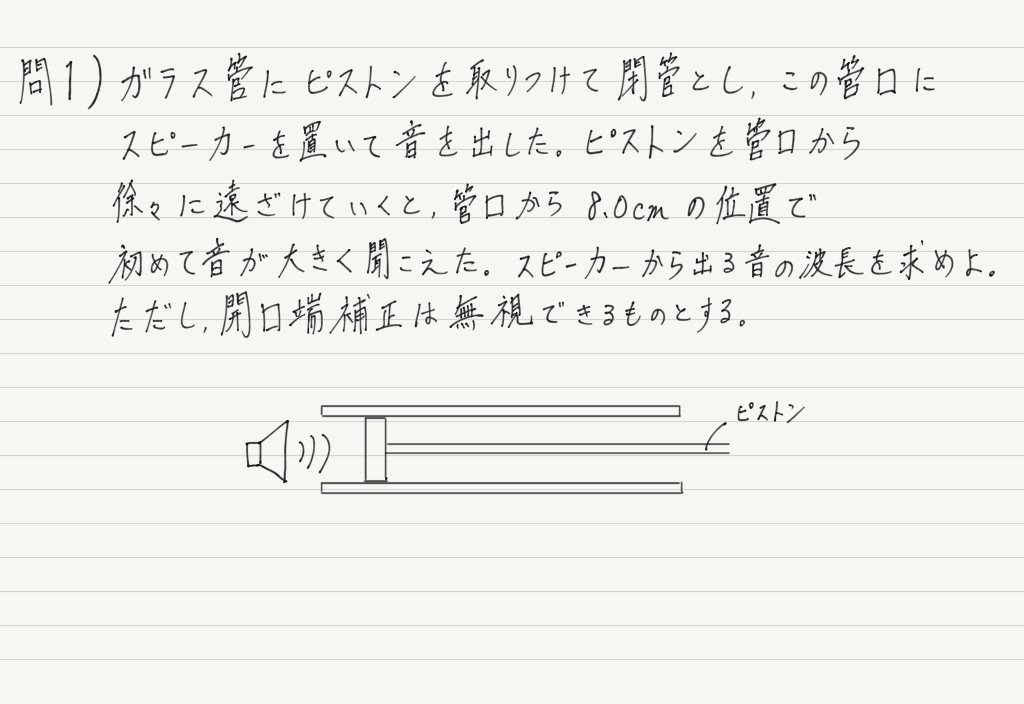 問1) ガラス管にピストンを取りつけて閉管とし, この管口に
スピーカーを置いて音を出した。ピストンを管口から
徐々に遠ざけていくと, 管口から 8.0cm の位置で
初めて音が大きく聞こえた。スピーカーから出る音の波長を求めよ.
ただし, 開口端補正は無視できるものとする。
ピストン